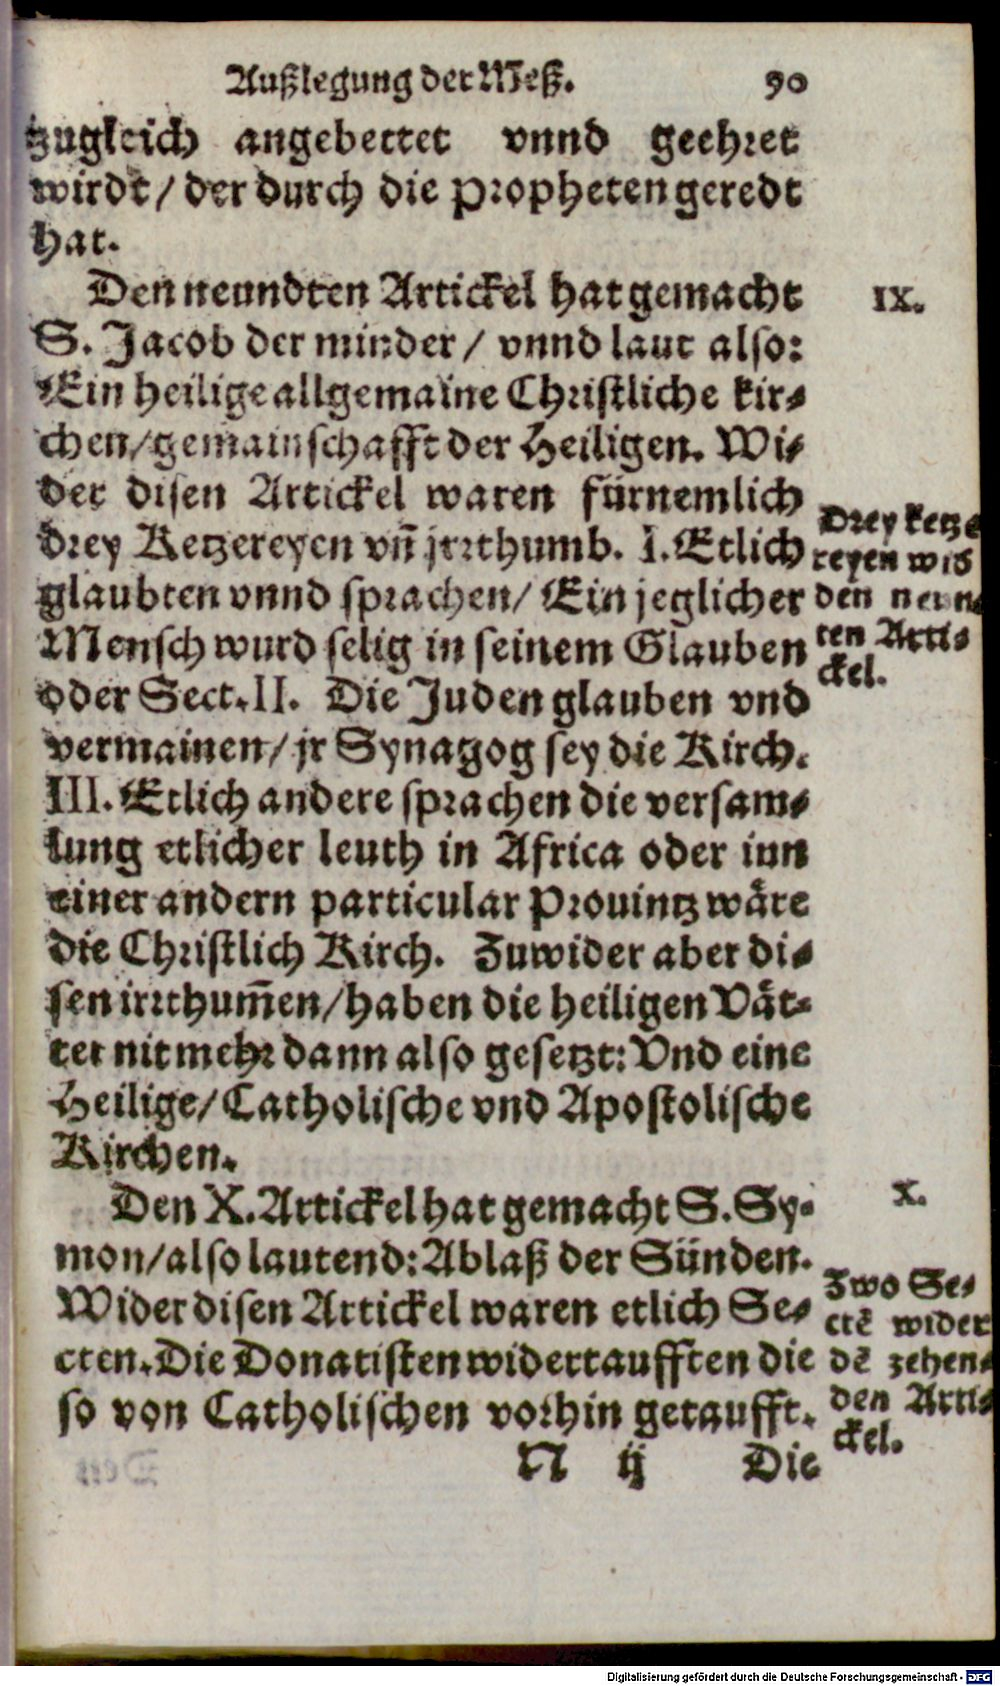 Außlegung der Meß. 90
zugleich angebettet vnnd geehret
wirdt / der durch die Propheten geredt
hat.
Den neundten Artickel hat gemacht
IX.
S. Jacob der minder / vnnd laut also:
Ein heilige allgemaine Christliche kir-
chen/gemainschafft der Heiligen. Wi-
der disen Artickel waren fürnemlich
drey Ketzereyen vñ jrrthumb. I. Etlich
glaubten vnnd sprachen/ Ein jeglicher
Mensch wurd selig in seinem Glauben
oder Sect. II. Die Juden glauben vnd
vermainen/ jr Synagog sey die Kirch.
III. Etlich andere sprachen die versam-
lung etlicher leuth in Africa oder inn
einer andern particular Prouintz wäre
die Christlich Kirch. Zuwider aber di-
sen irrthum̃en/haben die heiligen Vät-
ter nit mehr dann also gesetzt: Vnd eine
Heilige/Catholische vnd Apostolische
Kirchen.
Drey ketze
reyen wid
den neun-
ten Arti-
ckel.
Den X. Artickel hat gemacht S. Sy-
X.
mon/also lautend: Ablaß der Sünden.
Wider disen Artickel waren etlich Se-
cten. Die Donatisten widertaufften die
so von Catholischen vorhin getaufft.
Zwo Se-
ctẽ wider
dẽ zehen-
den Arti-
ckel.
N ij Die
Digitalisierung gefördert durch die Deutsche Forschungsgemeinschaft - DFG